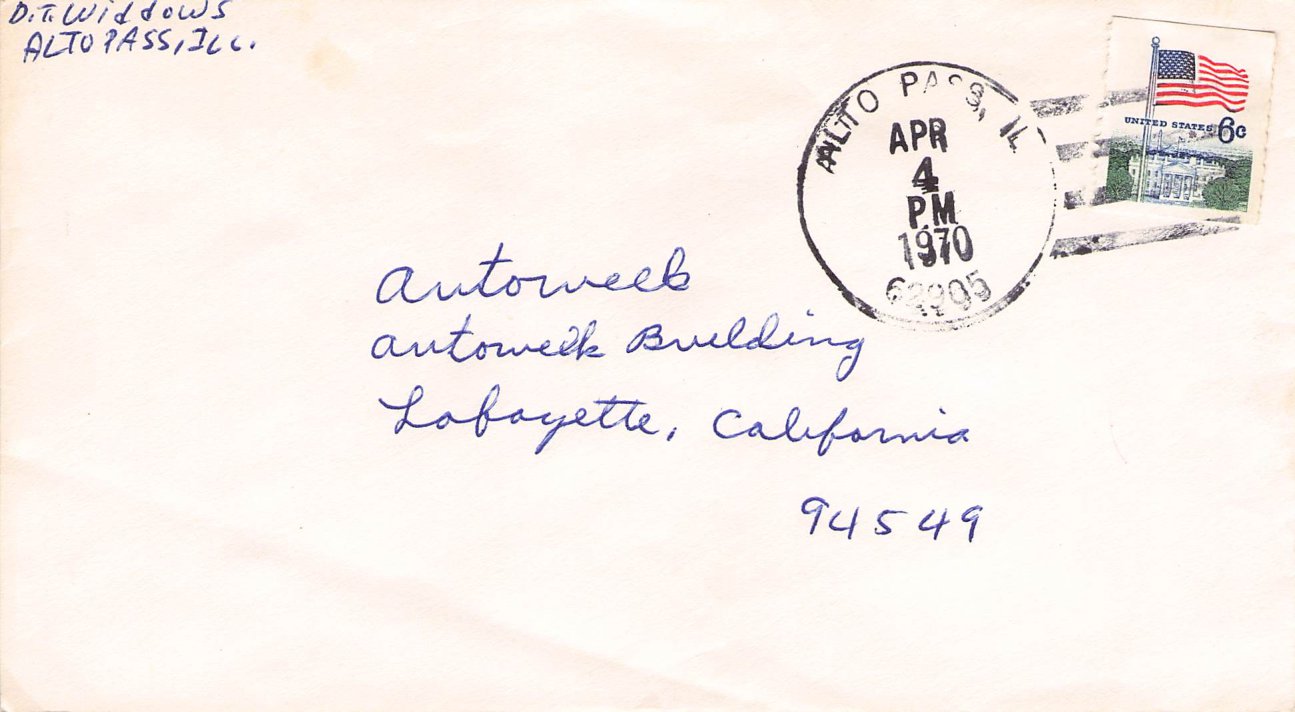 D.T. Widdows
ALTO PASS, ILL.
ALTO PASS, IL
APR
4
PM
1970
62905
UNITED STATES 6c
Autoweek
Autoweek Building
Lafayette, California
94549